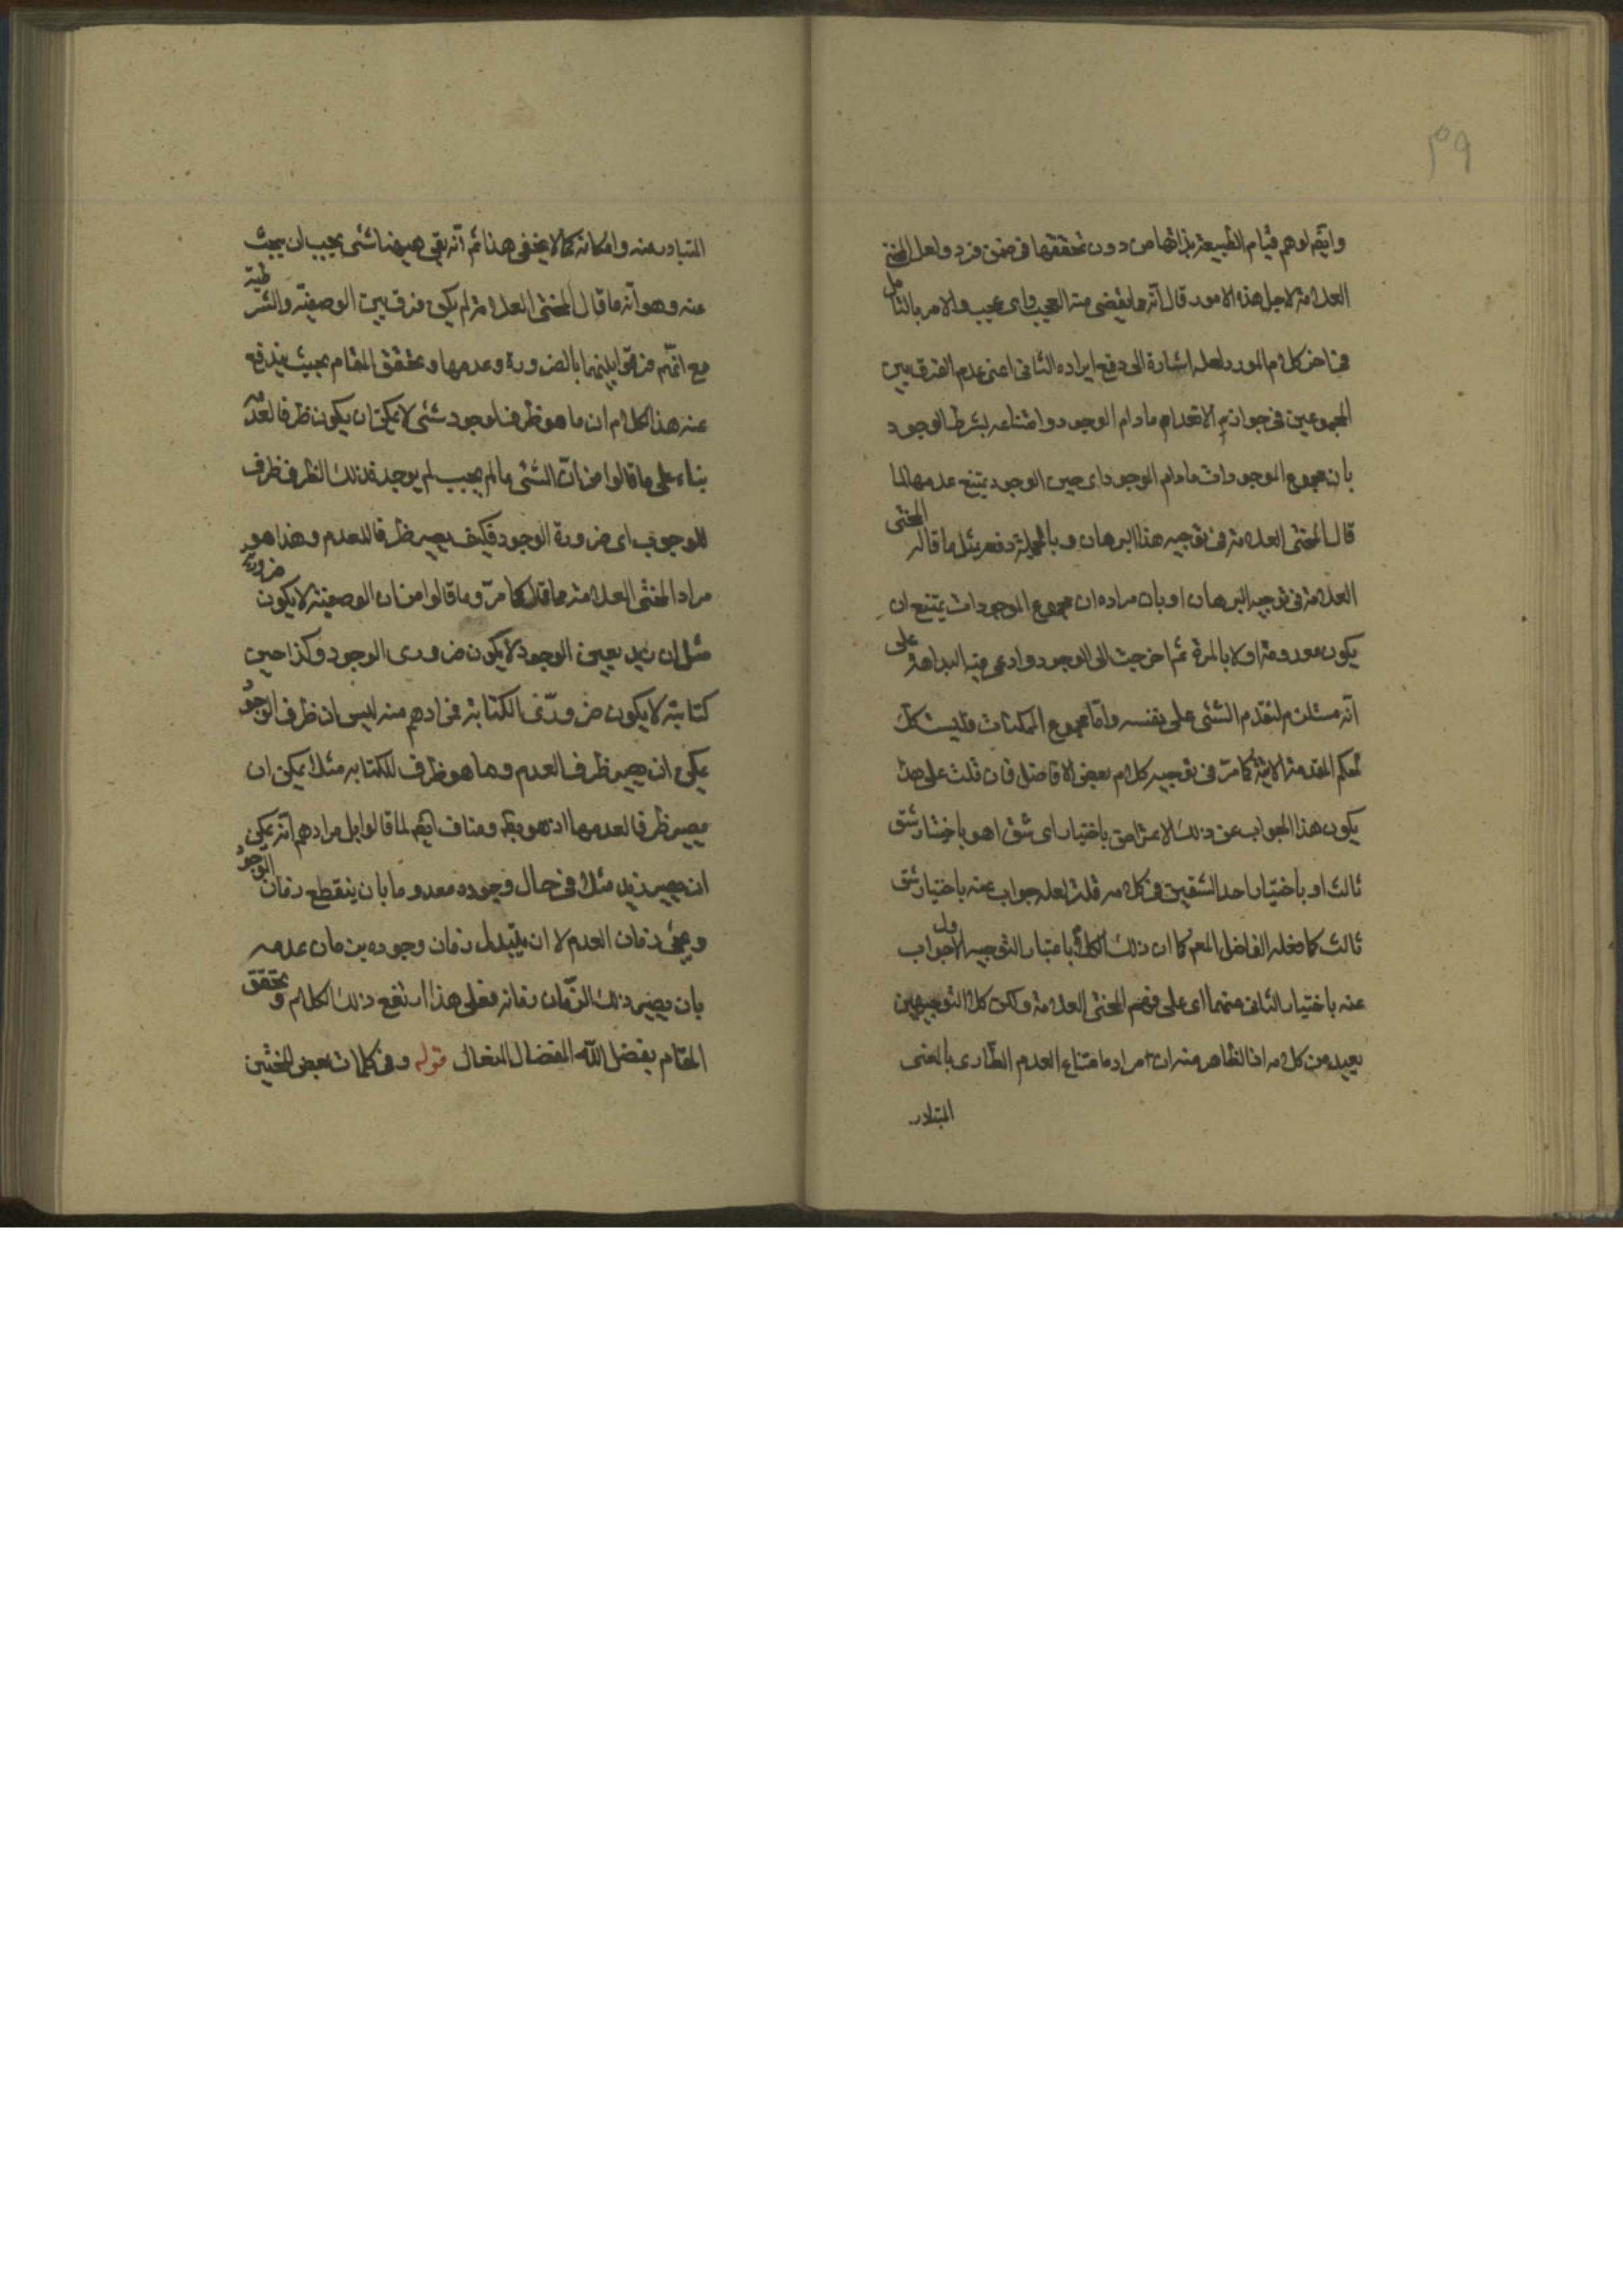 ٣٩
وايضم لوهم قيام الطبيعة بذاتها من دون تحققها فى ضمن فرد ولعل المحشى
العلامة لاجل هذه الامور قال انه مما يقضى منه العجب واى عجب والامر بالتامل
فى اخر كلام المورد لعله اشارة الى دفع ايراده الثانى اعنى عدم الفرق بين
المجموعين فى جواز الانعدام مادام الوجود وامتناعه بشرط الوجود
بان مجموع الموجودات مادام الوجود اى حين الوجود يمتنع عدمها لما
قال المحشى العلامة فى توجيه هذا البرهان وبالجملة دفعه بمثل ما قاله المحشى
العلامة فى توجيه البرهان او بان مراده ان مجموع الموجودات يمتنع ان
يكون معدومة اولا بالمرة ثم اخرجت الى الوجود وادعى فيه البداهة على
انه مستلزم لتقدم الشئ على نفسه واما مجموع الممكنات فليست كك
لحكم المقدمة الاتية كما مر فى توجيه كلام بعض الافاضل فان قلت على هذا
يكون هذا الجواب عن ذلك الاعتراض باختيار اى شق اهو باختيار شق
ثالث او باختيار احد الشقين فى كلامه قلت لعله جواب عنه باختيار شق
ثالث كما فعله الفاضل المعم كما ان ذلك الكلام باعتبار التوجيه الاول جواب
عنه باختيار الثانى منهما اى على فهم المحشى العلامة ولكن كلا التوجيهين
بعيد من كلامه اذ الظاهر منه ان مراده امتناع العدم الطارى بالمعنى
المتبادر
المتبادر منه وامكانه كما لا يخفى هذا ثم انه بقى هيهنا شئ يجب ان يبحث
عنه وهو انه ما قال المحشى العلامة لم يكن فرق بين الوصفية والشرطية
مع انهم فرقوا بينهما بالضرورة وعدمها وتحقق المقام بحيث يندفع
عنه هذا الكلام ان ما هو ظرف لوجود شئ لا يمكن ان يكون ظرفا لعدمه
بناء على ما قالوا من ان الشئ ما لم يجب لم يوجد فذلك الظرف ظرف
للوجوب اى ضرورة الوجود فكيف يصير ظرفا للعدم وهذا هو
مراد المحشى العلامة مما قال كما مر وما قالوا من ان الوصفية لا يكون ضرورية
مثل ان زيد بعين الوجود لا يكون ضرورى الوجود وكذا حين
كتابته لا يكون ضرورى الكتابة فمرادهم منه ليس ان ظرف الوجود
يمكن ان يصير ظرف العدم وما هو ظرف للكتابه مثلا يمكن ان
يصير ظرفا لعدمها اذ هو بديهى ومناف ايضم لما قالوا بل مرادهم انه يمكن
ان يصير زيد مثلا فى حال وجوده معدوما بان ينقطع زمان الوجود
ويجئ زمان العدم لا ان يتبدل زمان وجوده بزمان عدمه
بان يصير ذلك الزمان زمانه فعلى هذا ارتفع ذلك الكلام وتحقق
المقام بفضل الله المفضال المنعال قوله وفى كلمات بعض المحشين